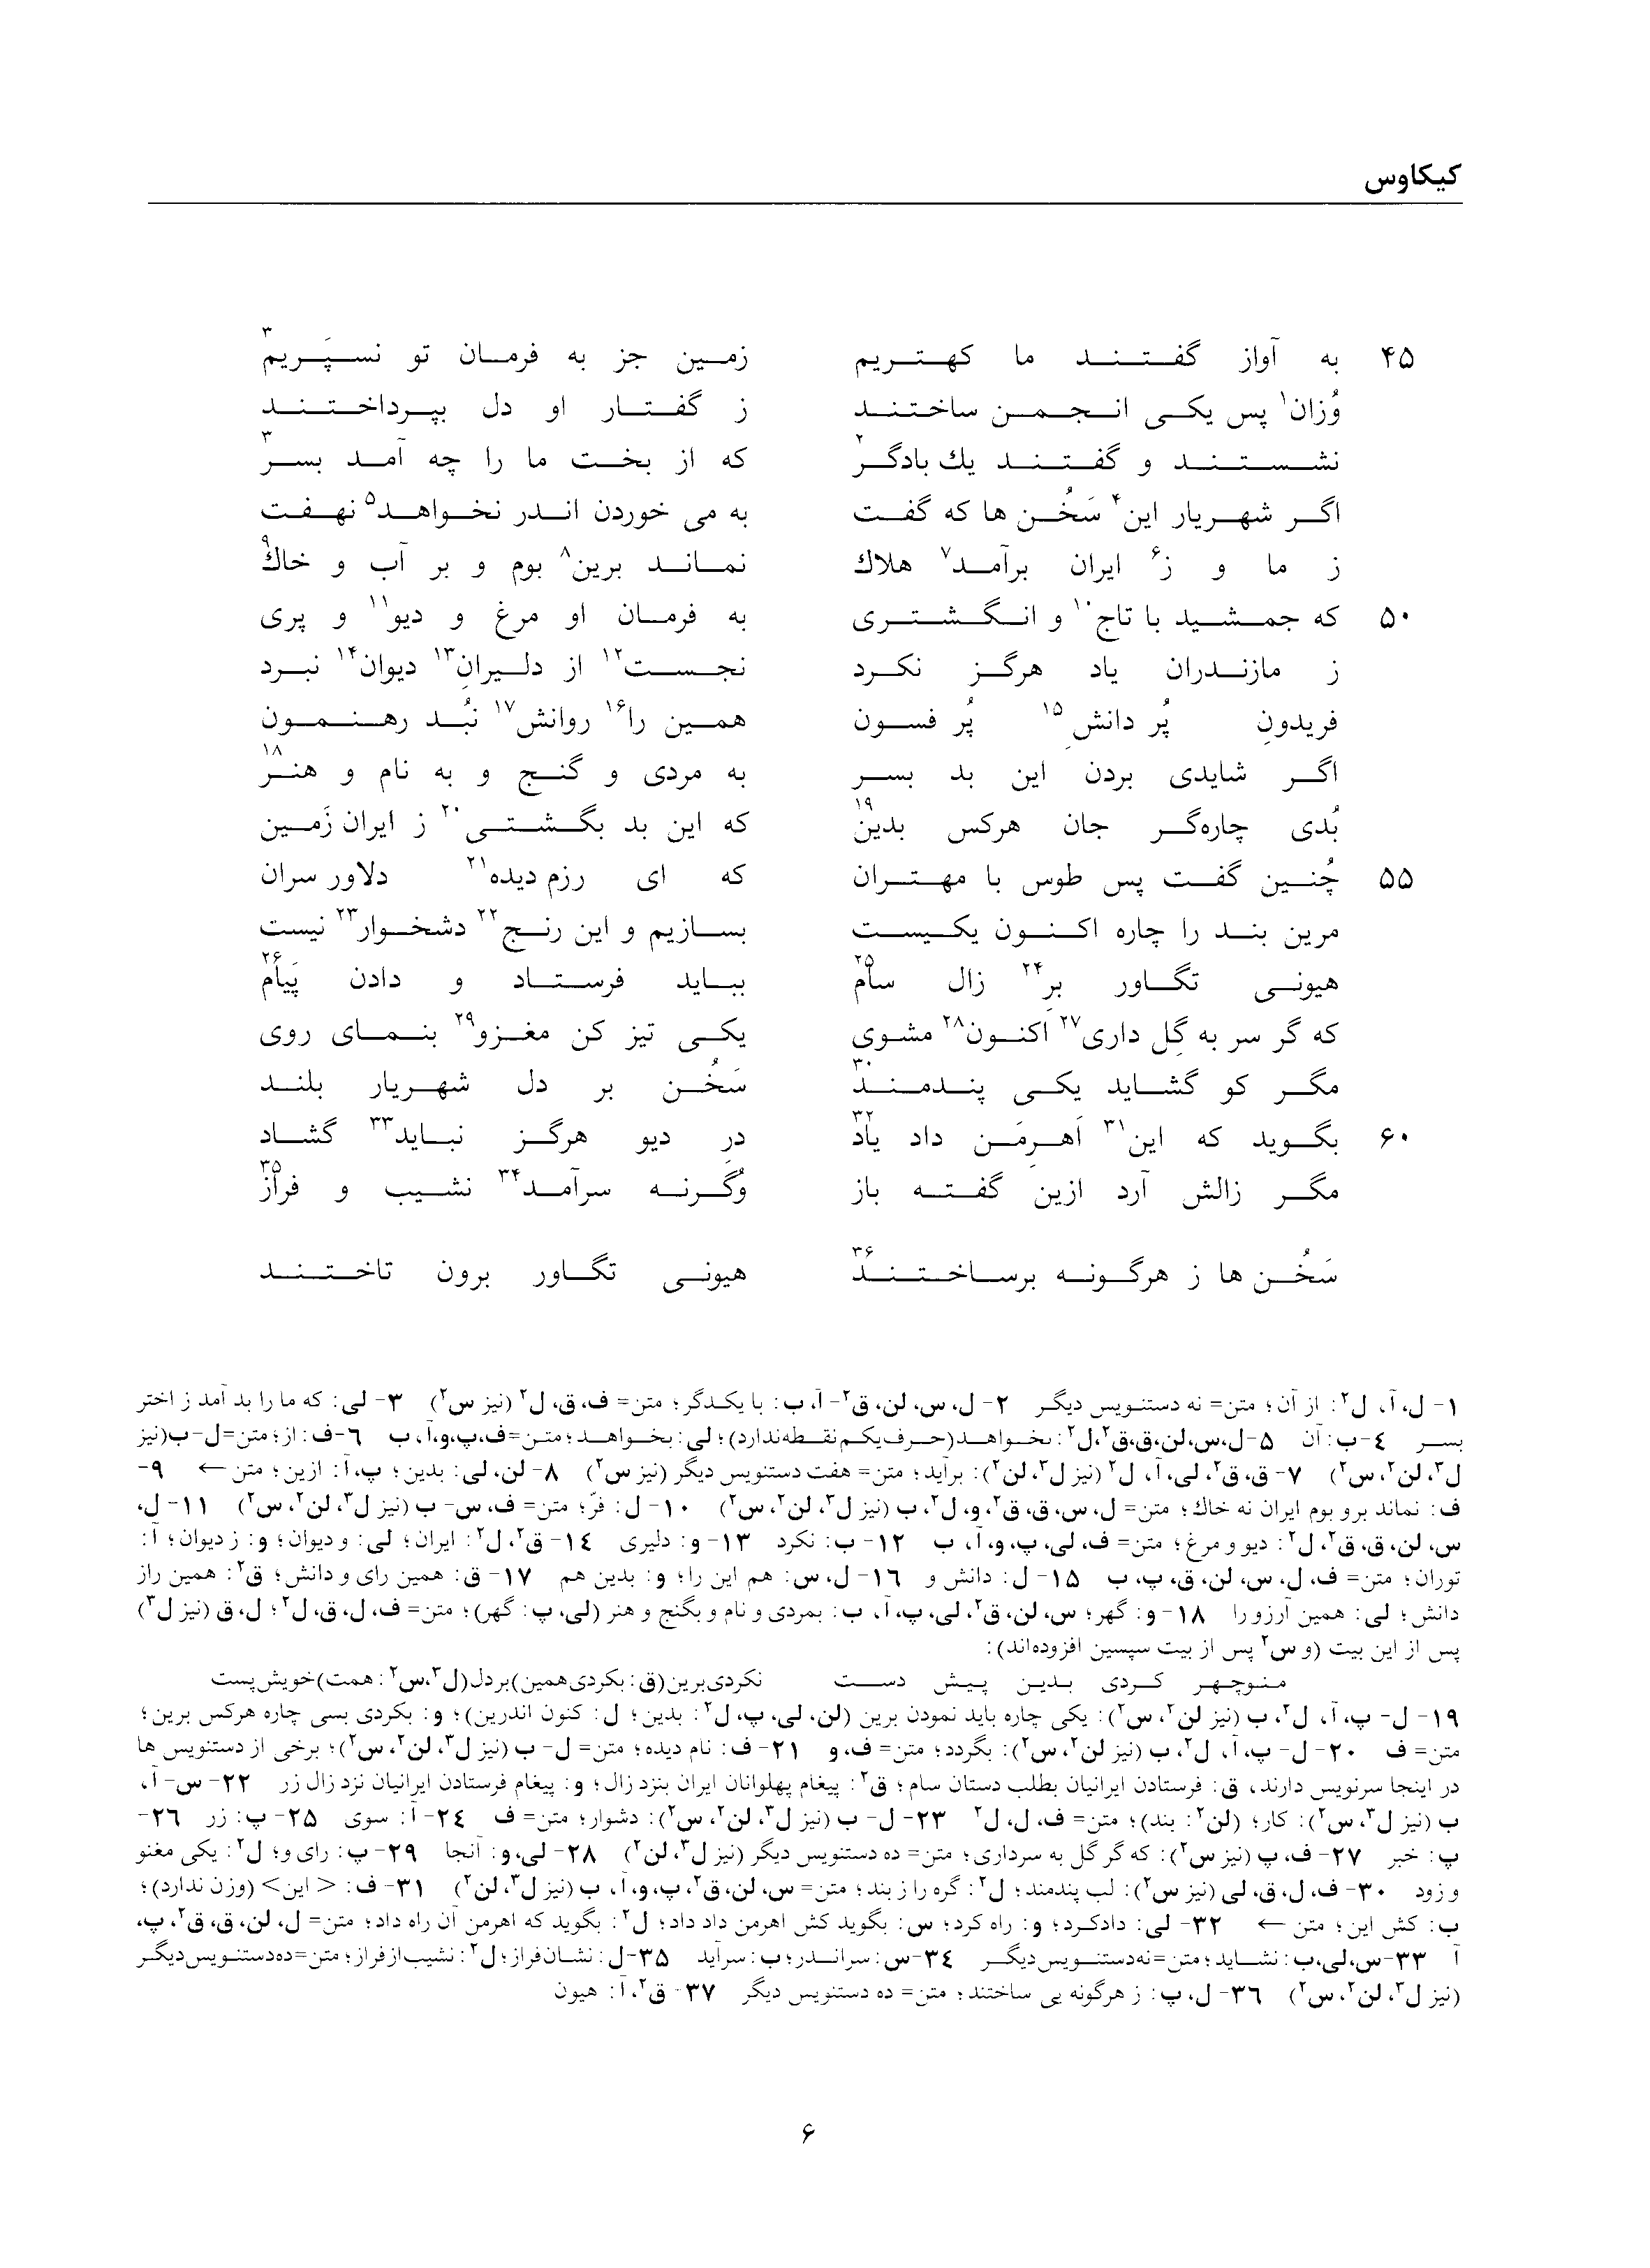 کیکاوس
۴۵ به آواز گفتند ما کهتریم زمین جز به فرمان تو نسپَریم۳
وُزان۱ پس یکی انجمن ساختند ز گفتار او دل بپرداختند
نشستند و گفتند یك بادگر۲ که از بخت ما را چه آمد بسر۳
اگر شهریار این۴ سَخُن ها که گفت به می خوردن اندر نخواهد۵ نهفت
ز ما و ز۶ ایران برآمد۷ هلاك نماند برین۸ بوم و بر آب و خاك۹
۵۰ که جمشید با تاج۱۰ و انگشتری به فرمان او مرغ و دیو۱۱ و پری
ز مازندران یاد هرگز نکرد نجست۱۲ از دلیرانِ۱۳ دیوان۱۴ نبرد
فریدونِ پُر دانشِ۱۵ پُر فسون همین را۱۶ روانش۱۷ نبُد رهنمون
اگر شایدی بردن این بد بسر به مردی و گنج و به نام و هنر۱۸
بُدی چاره‌گر جان هرکس بدین۱۹ که این بد بگشتی۲۰ ز ایران زَمین
۵۵ چُنین گفت پس طوس با مهتران که ای رزم دیده۲۱ دلاور سران
مرین بند را چاره اکنون یکیست بسازیم و این رنج۲۲ دشخوار۲۳ نیست
هیونی تگاور بَرِ۲۴ زال سام۲۵ بباید فرستاد و دادن پَیام۲۶
که گر سر به گِل داری۲۷ اکنون۲۸ مشوی یکی تیز کن مغز و۲۹ بنمای روی
مگر کو گشاید یکی پندمند۳۰ سَخُن بر دل شهریار بلند
۶۰ بگوید که این۳۱ اَهرِمَن داد یاد۳۲ درِ دیو هرگز نباید۳۳ گشاد
مگر زالش آرد ازین گفته باز وُگرنه سرآمد۳۴ نشیب و فراز۳۵
سَخُن ها ز هرگونه برساختند۳۶ هیونی تگاور برون تاختند
۱- ل، آ، ل۲: از آن؛ متن= نه دستنویس دیگر ۲- ل، س، لن، ق۲- آ، ب: با یکدگر؛ متن= ف، ق، ل۲ (نیز س۲) ۳- لی: که ما را بد آمد ز اختر
بسر ٤-ب: آن ۵-ل،س،لن،ق،ق۲،ل۲: نخواهد(حرف یکم نقطه ندارد)؛ لی: بخواهد؛ متن=ف،پ،و،آ، ب ٦-ف: از؛ متن=ل-ب(نیز
ل۳، لن۲، س۲) ۷- ق، ق۲، لی، آ، ل۲ (نیز ل۳، لن۲): برآید؛ متن= هفت دستنویس دیگر (نیز س۲) ۸- لن، لی: بدین؛ پ، آ: ازین؛ متن ← ۹-
ف: نماند بر و بوم ایران نه خاك؛ متن= ل، س، ق، ق۲، و، ل۲، ب (نیز ل۳، لن۲، س۲) ۱۰- ل: فرّ؛ متن= ف، س- ب (نیز ل۳، لن۲، س۲) ۱۱- ل،
س، لن، ق، ق۲، ل۲: دیو و مرغ؛ متن= ف، لی، پ، و، آ، ب ۱۲- ب: نکرد ۱۳- و: دلیری ۱٤- ق۲، ل۲: ایران؛ لی: و دیوان؛ و: ز دیوان؛ آ:
توران؛ متن= ف، ل، س، لن، ق، پ، ب ۱۵- ل: دانش و ۱٦- ل، س: هم این را؛ و: بدین هم ۱۷- ق: همین رای و دانش؛ ق۲: همین راز
دانش؛ لی: همین آرزو را ۱۸- و: گهر؛ س، لن، ق۲، لی، پ، آ، ب: بمردی و نام و بگنج و هنر (لی، پ: گهر)؛ متن= ف، ل، ق، ل۲؛ ل، ق (نیز ل۳)
پس از این بیت (و س۲ پس از بیت سپسین افزوده‌اند):
منوچهر کردی بدین پیش دست نکردی برین (ق: بکردی همین) بر دل (ل۳، س۲: همت) خویش پست
۱۹- ل- پ، آ، ل۲، ب (نیز لن۲، س۲): یکی چاره باید نمودن برین (لن، لی، پ، ل۲: بدین؛ ل: کنون اندرین)؛ و: بکردی بسی چاره هرکس برین؛
متن= ف ۲۰- ل- پ، آ، ل۲، ب (نیز لن۲، س۲): بگردد؛ متن= ف، و ۲۱- ف: نام دیده؛ متن= ل- ب (نیز ل۳، لن۲، س۲)؛ برخی از دستنویس ها
در اینجا سرنویس دارند، ق: فرستادن ایرانیان بطلب دستان سام؛ ق۲: پیغام پهلوانان ایران بنزد زال؛ و: پیغام فرستادن ایرانیان نزد زال زر ۲۲- س- آ،
ب (نیز ل۳، س۲): کار؛ (لن۲: بند)؛ متن= ف، ل، ل۲ ۲۳- ل- ب (نیز ل۳، لن۲، س۲): دشوار؛ متن= ف ۲٤- آ: سوی ۲۵- پ: زر ۲٦-
پ: خبر ۲۷- ف، پ (نیز س۲): که گر گل به سرداری؛ متن= ده دستنویس دیگر (نیز ل۳، لن۲) ۲۸- لی، و: آنجا ۲۹- پ: رای و؛ ل۲: یکی مغنو
و زود ۳۰- ف، ل، ق، لی (نیز س۲): لب پندمند؛ ل۲: گره را ز بند؛ متن= س، لن، ق۲، پ، و، آ، ب (نیز ل۳، لن۲) ۳۱- ف: <این> (وزن ندارد)؛
ب: کش این؛ متن ← ۳۲- لی: داد کرد؛ و: راه کرد؛ س: بگوید کش اهرمن داد داد؛ ل۲: بگوید که اهرمن آن راه داد؛ متن= ل، لن، ق، ق۲، پ،
آ ۳۳-س،لی،ب: نشاید؛ متن=نه دستنویس دیگر ۳٤-س: سر اندر؛ ب: سرآید ۳۵-ل: نشان فراز؛ ل۲: نشیب از فراز؛ متن=ده دستنویس دیگر
(نیز ل۳، لن۲، س۲) ۳٦- ل، پ: ز هرگونه یی ساختند؛ متن= ده دستنویس دیگر ۳۷- ق۲، آ: هیون
۶